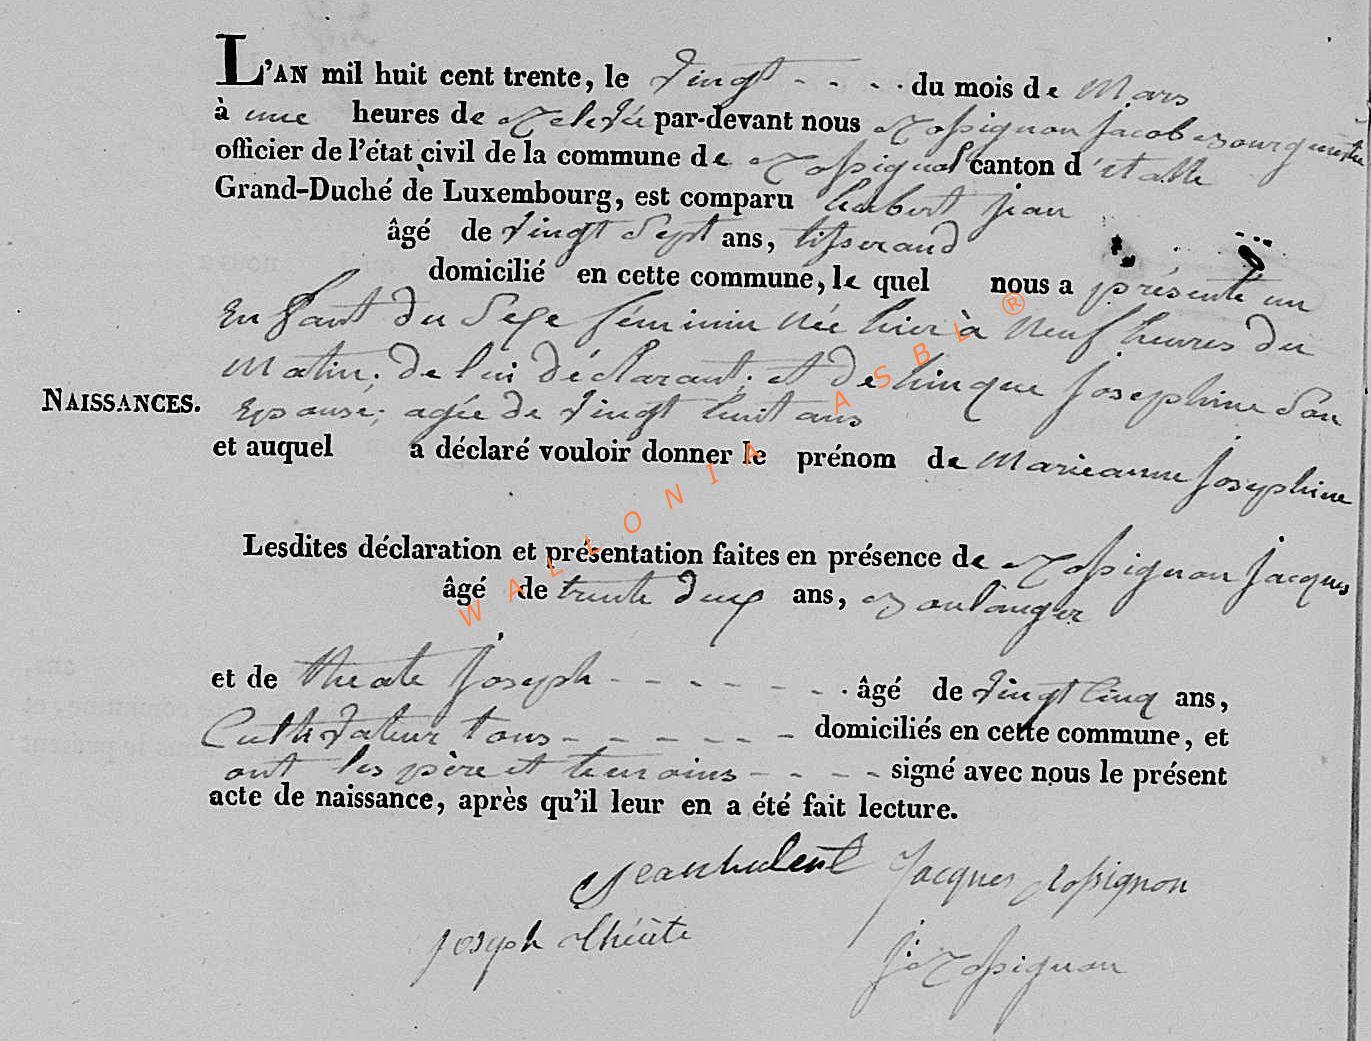 L'AN mil huit cent trente, le vingt - - - - du mois de Mars
à une heures de Relevée par-devant nous Rossignon Jacob Bourguemestre
officier de l'état civil de la commune de Rossignol canton d'étalle
Grand-Duché de Luxembourg, est comparu hubert jean
âgé de vingt Sept ans, tisserand
domicilié en cette commune, le quel nous a présenté un
Enfant du Sexe féminin née hier à Neuf heures du
Matin; de lui déclarant; et de Josephine Son
Epouse; agée de vingt huit ans
NAISSANCES.
et auquel a déclaré vouloir donner le prénom de Marieanne Josephine
Lesdites déclaration et présentation faites en présence de Rossignon Jacques
âgé de trente deux ans, Boulanger
et de Joseph - - - - - - - - âgé de vingt Cinq ans,
Cultivateur tous - - - - - - domiciliés en cette commune, et
ont les père et temoins - - - - signé avec nous le présent
acte de naissance, après qu'il leur en a été fait lecture.
Jean hubert Jacques Rossignon
Joseph
J: Rossignon
WALLONIA ASBL ®